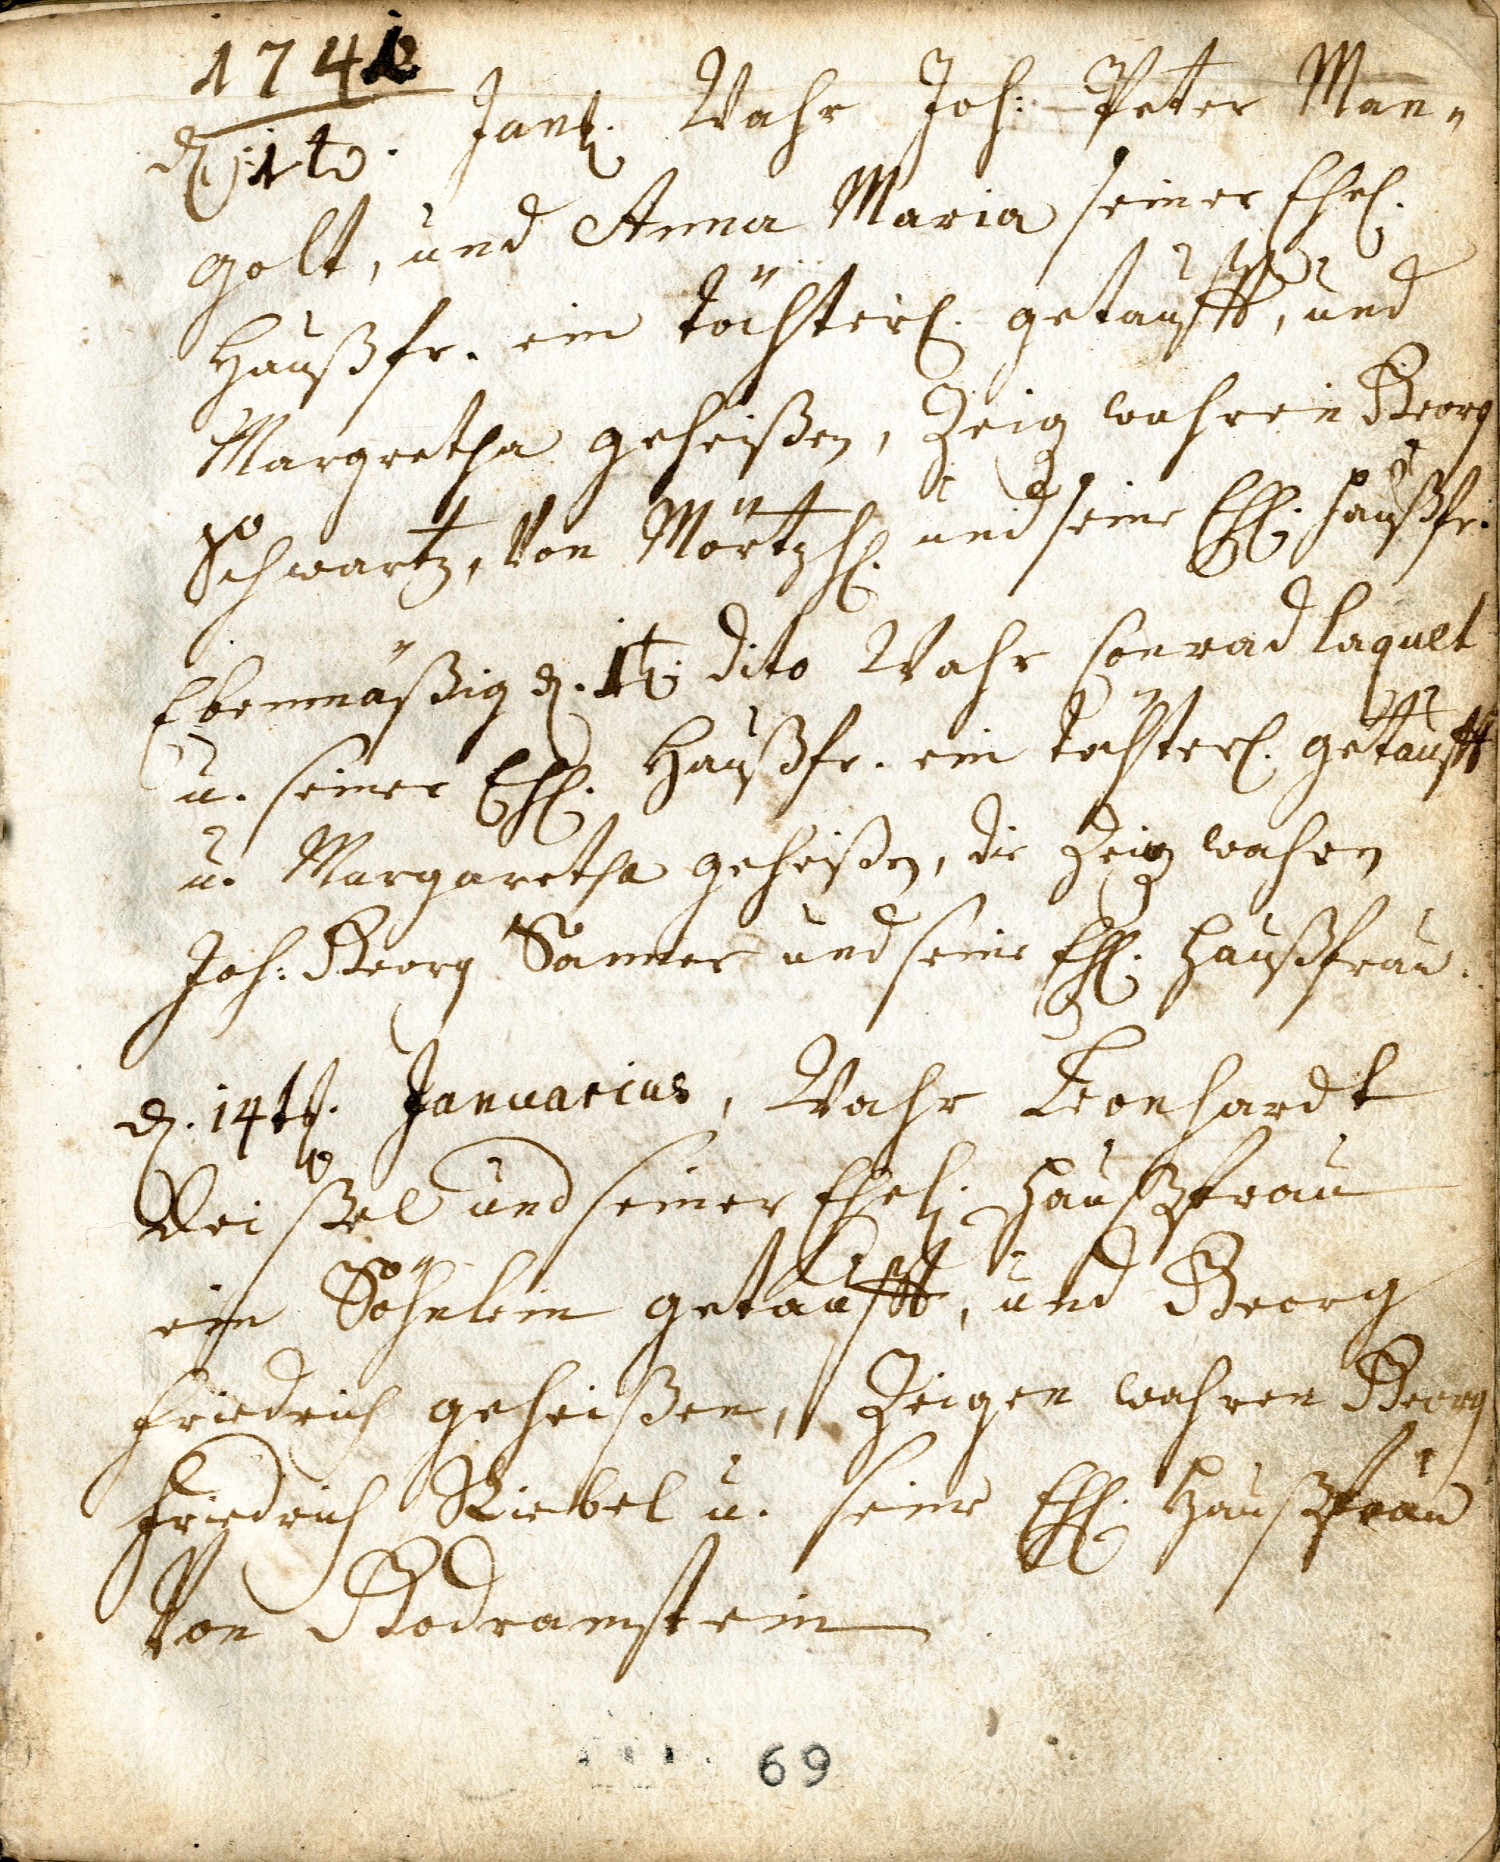 1741
d. 1te. Janl. Wahr Joh: Peter Man„
golt, und Anna Maria seiner Ehel.
Haußfr. ein töchterl. getaufft, und
Margretha geheißen, Zeig wahren Georg
Schwartz, Von Mörtzh. und seine Ehl. haußfr.
Ebenmäßig d. 1te dito Wahr Conrad laquet
u. seiner Ehl. Haußfr. ein töchterl. getaufft
u. Margaretha geheißen, die Zeig wahren
Joh: Georg Samer und seine Ehl. haußfrau.
d. 14te. Januarius, Wahr Leonhardt
Weißel und seiner Ehel. haußfrau
ein Söhnlein getaufft, und Georg
friedrich geheißen, Zeigen wahren Georg
friedrich Riebel u. seine Ehl. haußfrau
Von Godramstein
69